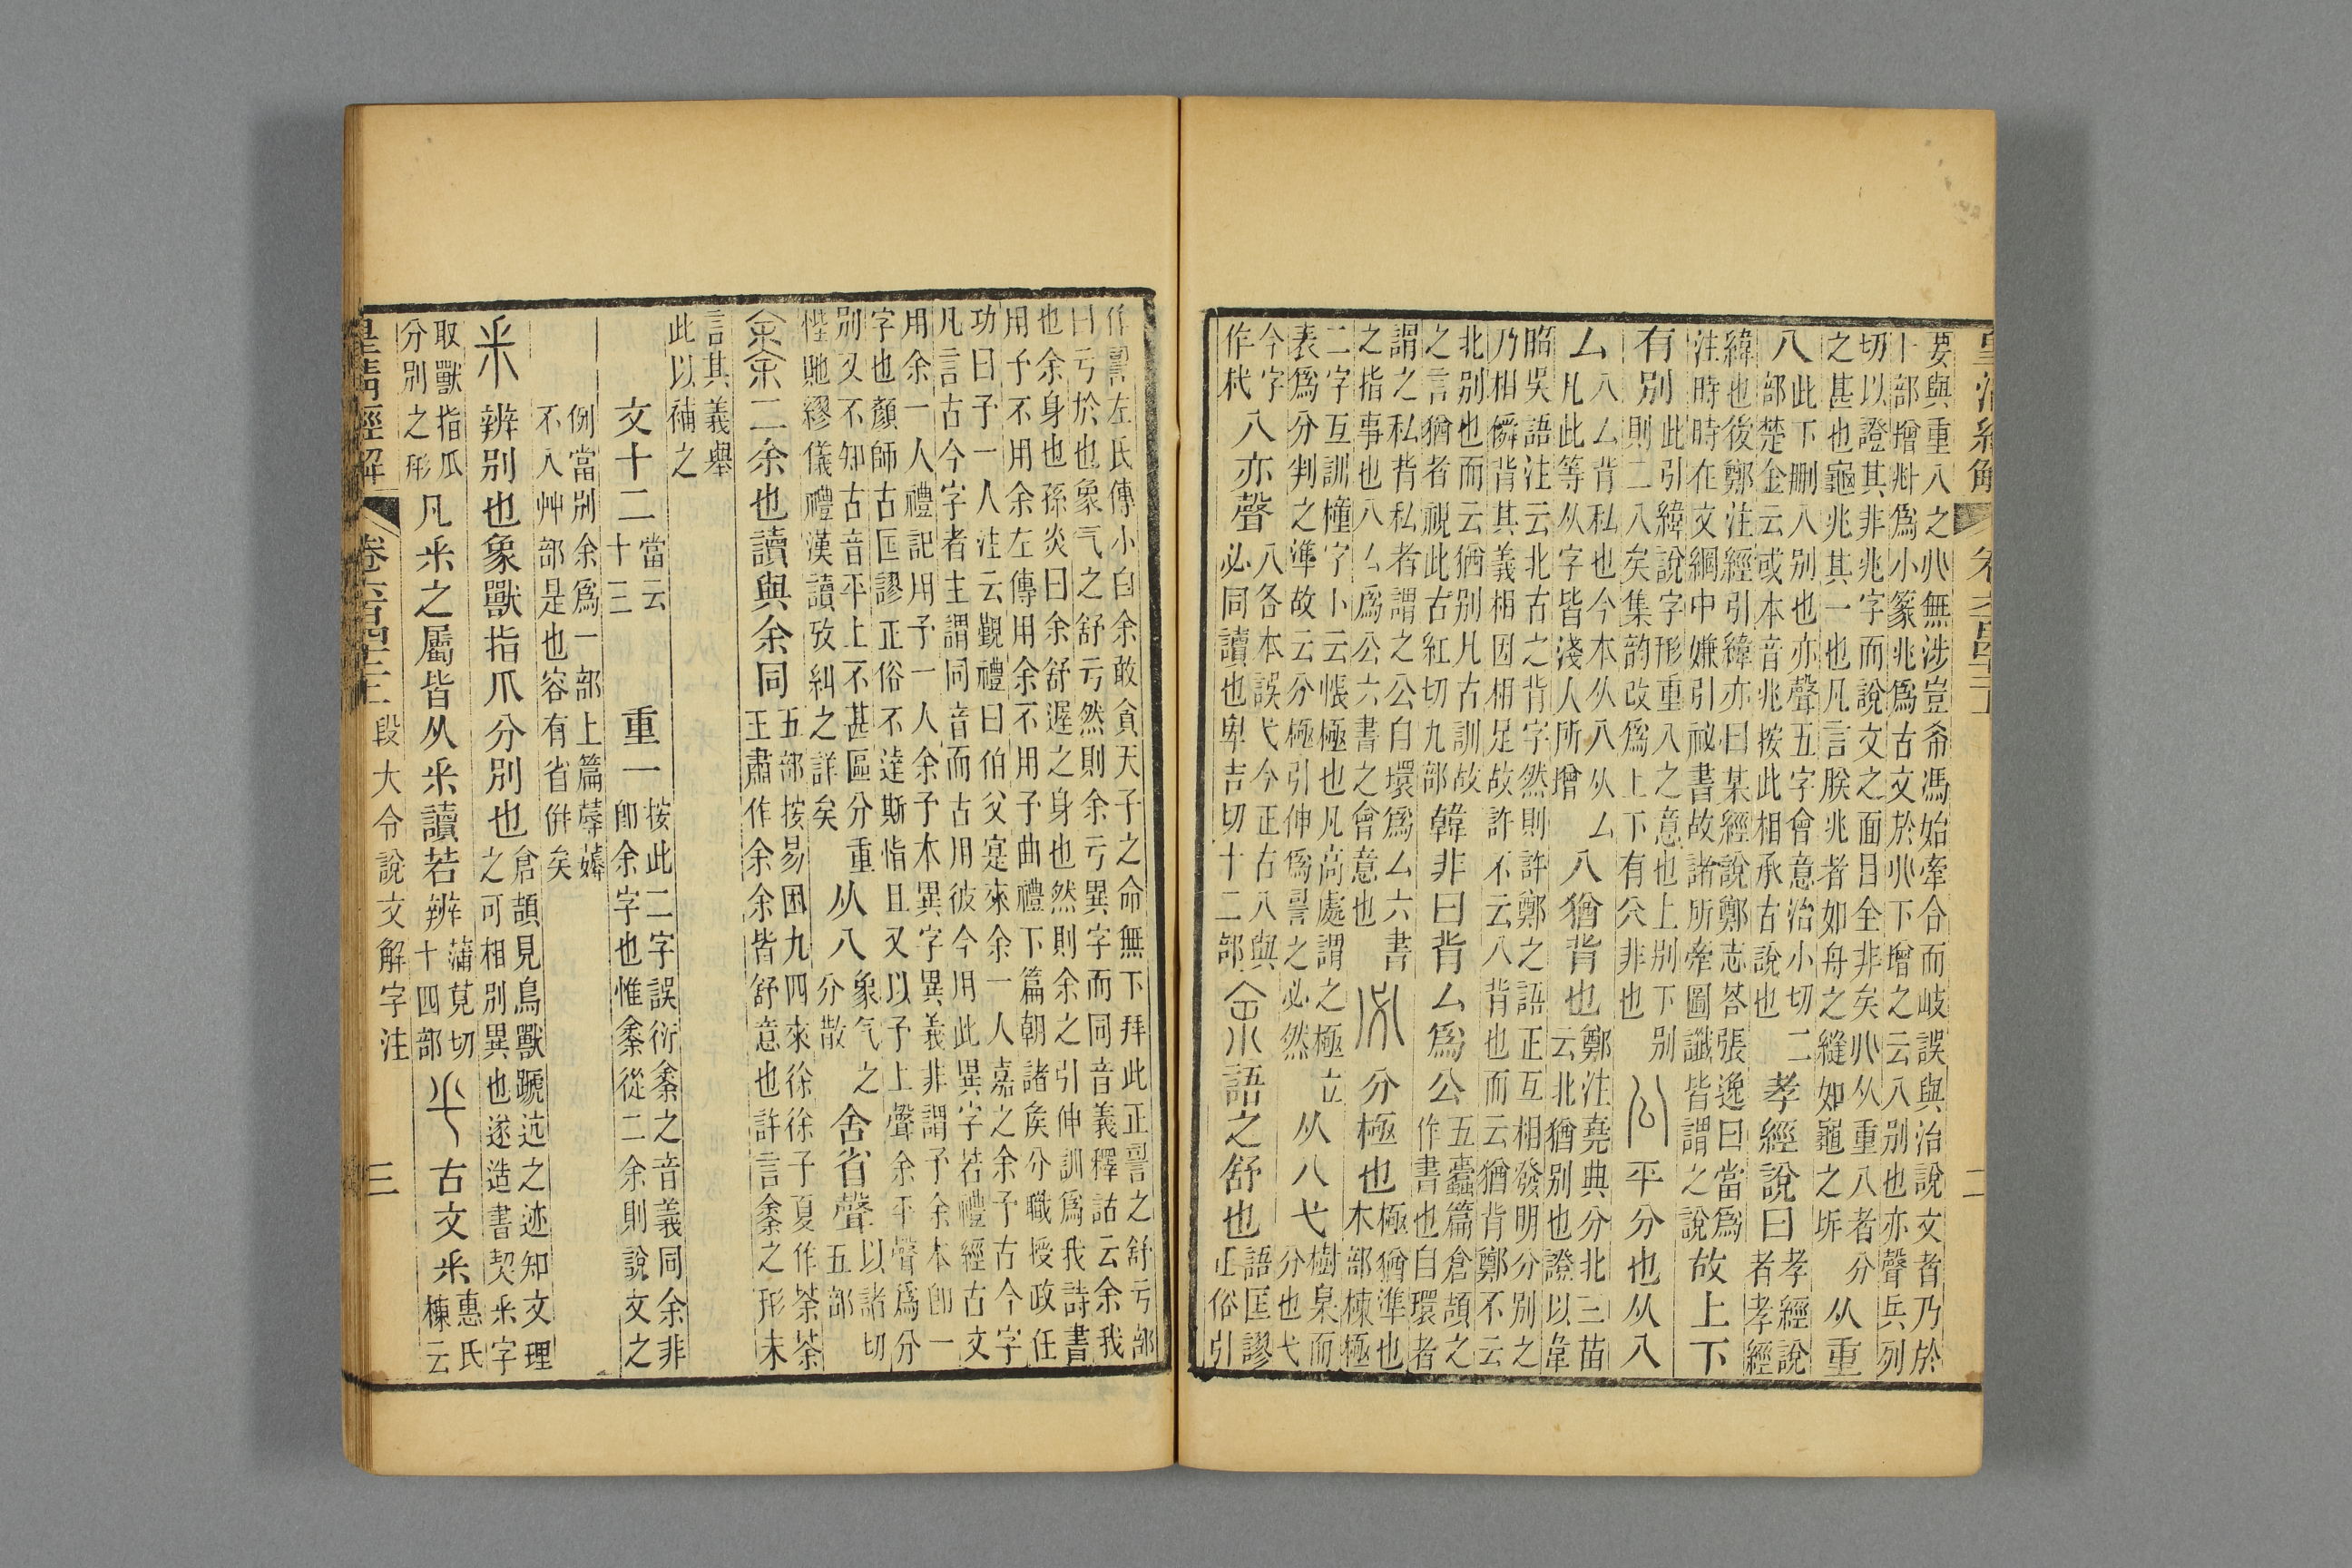 皇清經解 卷六百四十三 二
要與重八之𠔁無涉豈希馮始牽合而岐誤與治說文者乃於
卜部增𠧞爲小篆兆爲古文於𠔁下增之云八別也亦聲兵列
切以證其非兆字而說文之面目全非矣𠔁从重八者分
之甚也龜兆其一也凡言朕兆者如舟之縫如龜之坼
从重
八
此下刪八別也亦聲五字會意治小切二
部楚金云或本音兆按此相承古說也
孝經說曰
孝經說
者孝經
緯也後鄭注經引緯亦曰某經說鄭志荅張逸曰當爲
注時時在文綱中嫌引祕書故諸所牽圖讖皆謂之說
故上下
有別
此引緯說字形重八之意也上別下別
則二八矣集韵改爲上下有𠔁非也
公平分也从八
厶
八厶背私也今本从八从厶
凡此等从字皆淺人所增
八猶背也
鄭注堯典分北三苗
云北猶別也證以韋
昭吳語注云北古之背字然則許鄭之語正互相發明分別之
乃相僢背其義相因相足故許不云八背也而云猶背鄭不云
北別也而云猶別凡古訓故
之言猶者視此古紅切九部
韓非曰背厶爲公
五蠹篇倉頡之
作書也自環者
謂之私背私者謂之公自環爲厶六書
之指事也八厶爲公六書之會意也
必分極也
極猶準也
木部棟極
二字互訓橦字下云帳極也凡高處謂之極立
表爲分判之準故云分極引伸爲䛐之必然
从八弋
樹臬而
分也弋
今字
作杙
八亦聲
八各本誤弋今正古八與
必同讀也卑吉切十二部
余語之舒也
語匡謬
正俗引
作䛐左氏傳小白余敢貪天子之命無下拜此正䛐之舒亏部
曰亏於也象气之舒亏然則余亏異字而同音義釋詁云余我
也余身也孫炎曰余舒遟之身也然則余之引伸訓爲我詩書
用予不用余左傳用余不用予曲禮下篇朝諸矦分職授政任
功曰予一人注云覲禮曰伯父寔來余一人嘉之余予古今字
凡言古今字者主謂同音而古用彼今用此異字若禮經古文
用余一人禮記用予一人余予本異字異義非謂予余本卽一
字也顏師古匡謬正俗不達斯恉且又以予上聲余平聲爲分
別又不知古音平上不甚區分重
悂貤繆儀禮漢讀攷糾之詳矣
从八
象气之
分散
舍省聲
以諸切
五部
𠎳二余也讀與余同
五部按易困九四來徐徐子夏作荼荼
王肅作余余余皆舒意也許言𠎳之形未
言其義舉
此以補之
文十二
當云
十三
重一
按此二字誤衍𠎳之音義同余非
卽余字也惟𠎳從二余則說文之
例當別余爲一部上篇蓐薅
不入艸部是也容有省倂矣
釆辨別也象獸指爪分別也
倉頡見鳥獸蹏迒之迹知文理
之可相別異也遂造書契釆字
取獸指爪
分別之形
凡釆之屬皆从釆讀若辨
蒲莧切
十四部
古文釆
惠氏
棟云
皇清經解 卷六百四十三 段大令說文解字注 三